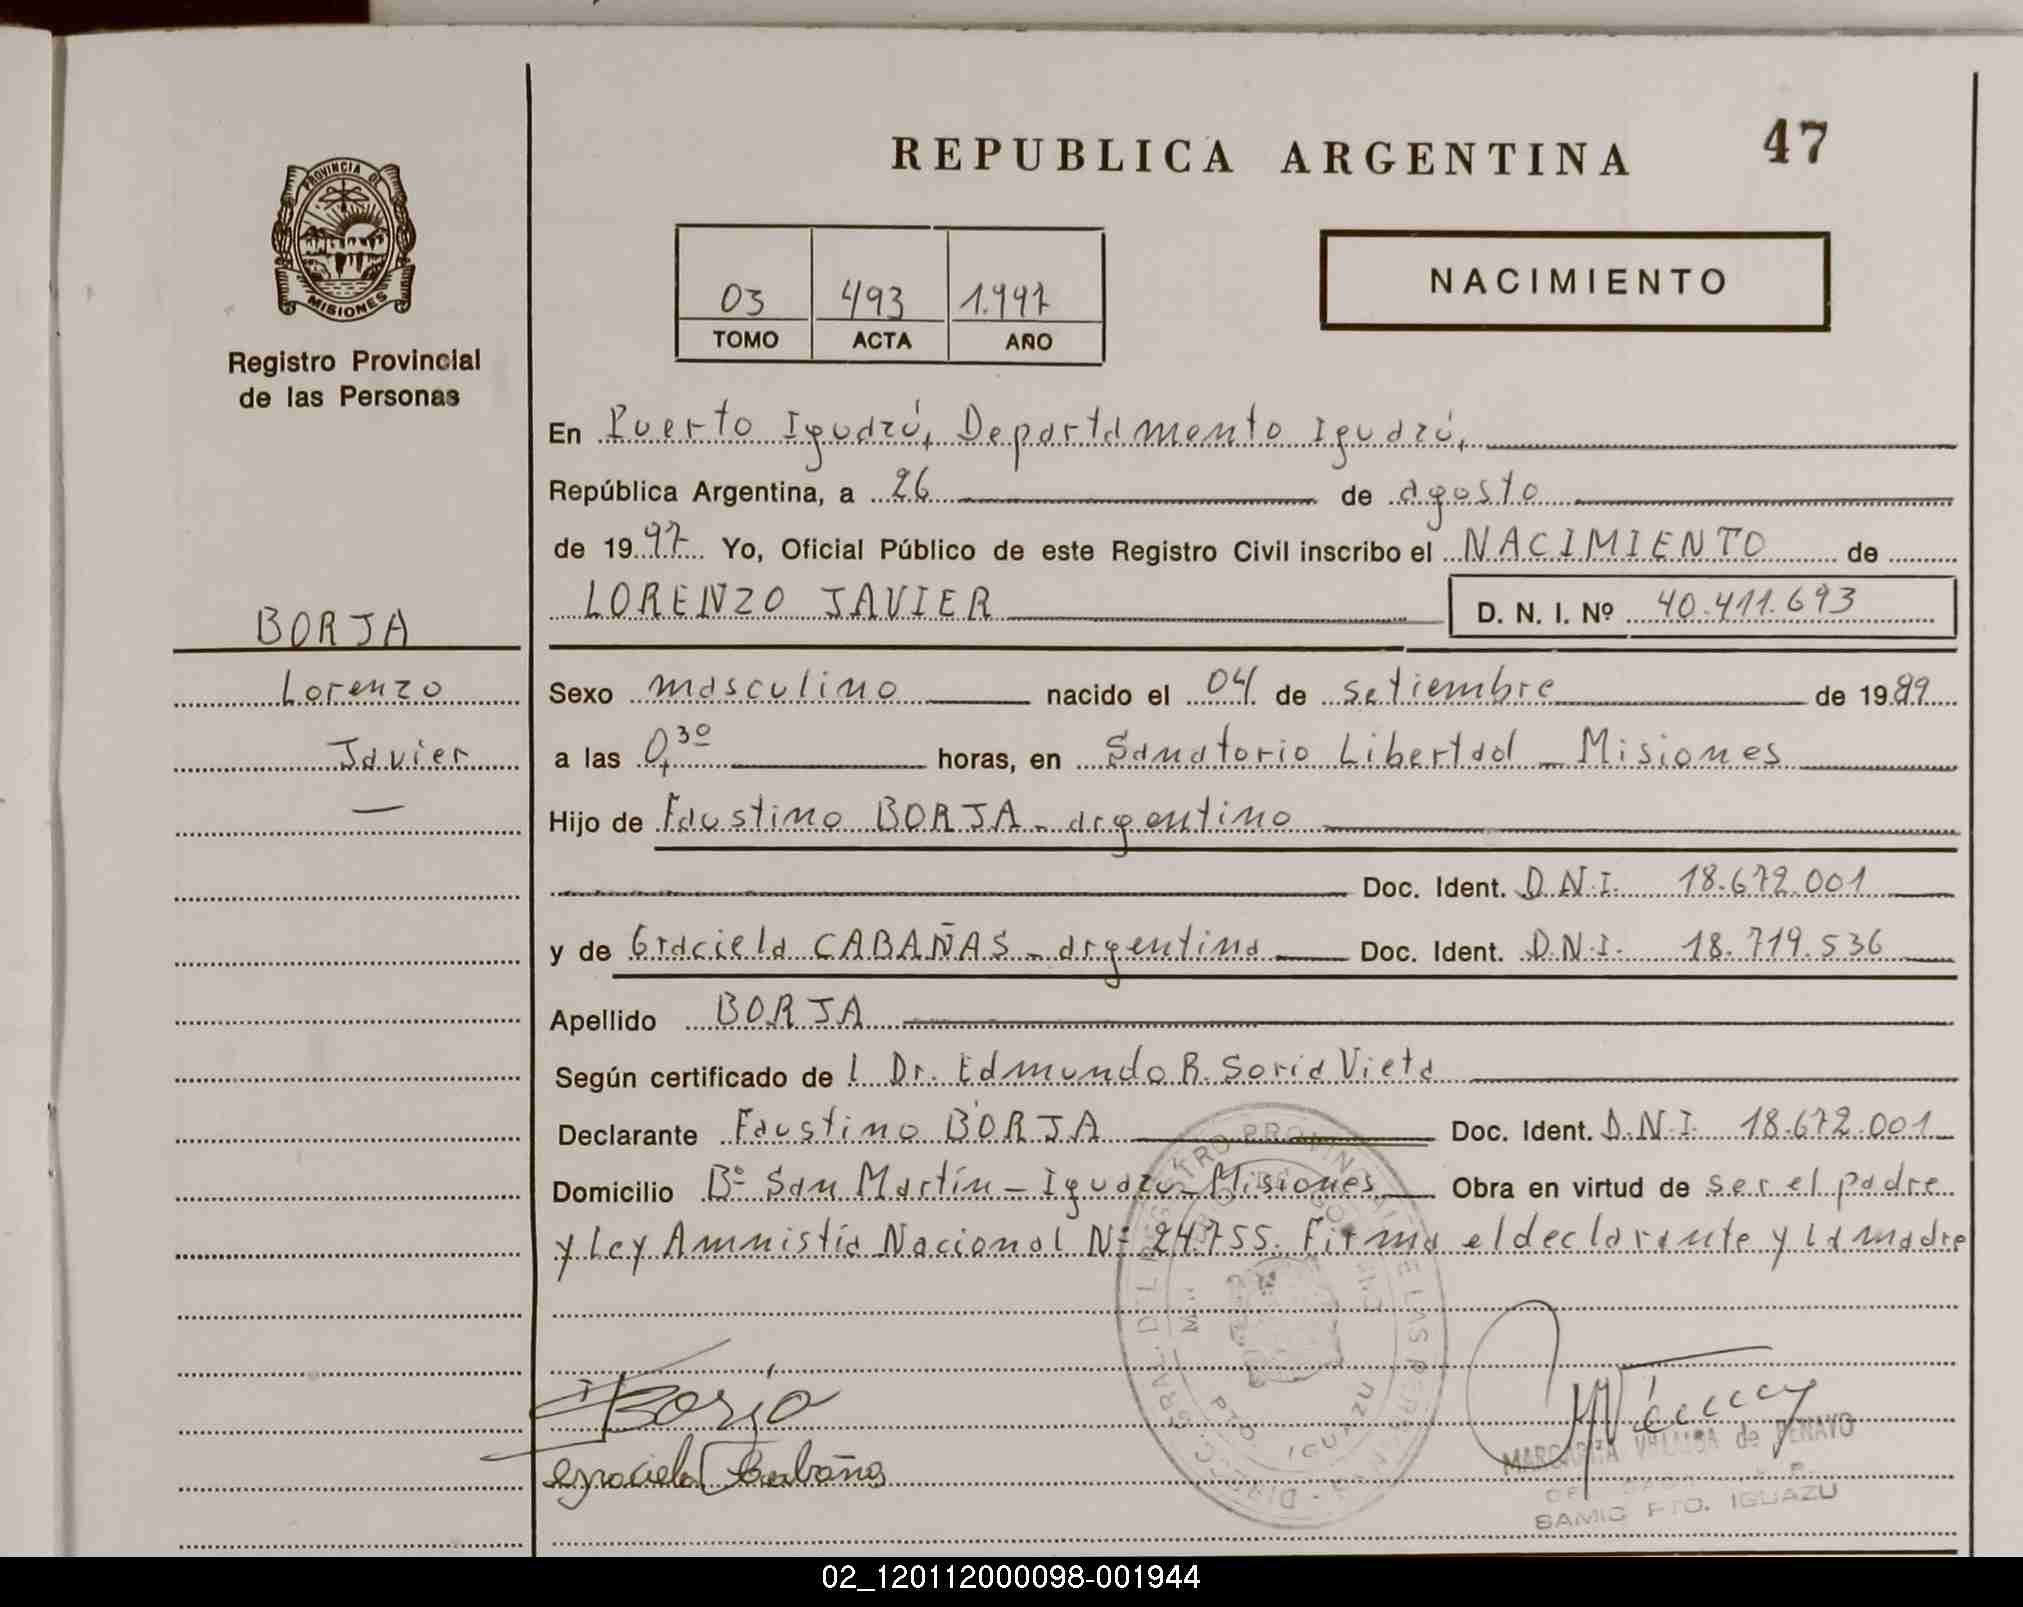 REPUBLICA ARGENTINA 47
PROVINCIA DE
MISIONES
Registro Provincial
de las Personas
03 493 1.997
TOMO ACTA AÑO
NACIMIENTO
En Puerto Iguazú, Departamento Iguazú,
República Argentina, a 26 de agosto
de 1997 Yo, Oficial Público de este Registro Civil inscribo el NACIMIENTO de
LORENZO JAVIER D. N. I. Nº 40.411.693
BORJA
Lorenzo
Javier
Sexo masculino nacido el 04 de setiembre de 1989
a las 0,30 horas, en Sanatorio Libertad - Misiones
Hijo de Faustino BORJA - argentino
Doc. Ident. D.N.I. 18.672.001
y de Graciela CABAÑAS - argentina Doc. Ident. D.N.I. 18.719.536
Apellido BORJA
Según certificado de l Dr. Edmundo R. Soria Vieta
Declarante Faustino BORJA Doc. Ident. D.N.I. 18.672.001
Domicilio Bº San Martín - Iguazú - Misiones Obra en virtud de ser el padre
y Ley Amnistía Nacional Nº 24.755. Firma el declarante y la madre
F Borja
Graciela Cabañas
PTO. IGUAZU
MARGARITA VILLALBA de PENAYO
SAMIC PTO. IGUAZU
02_120112000098-001944